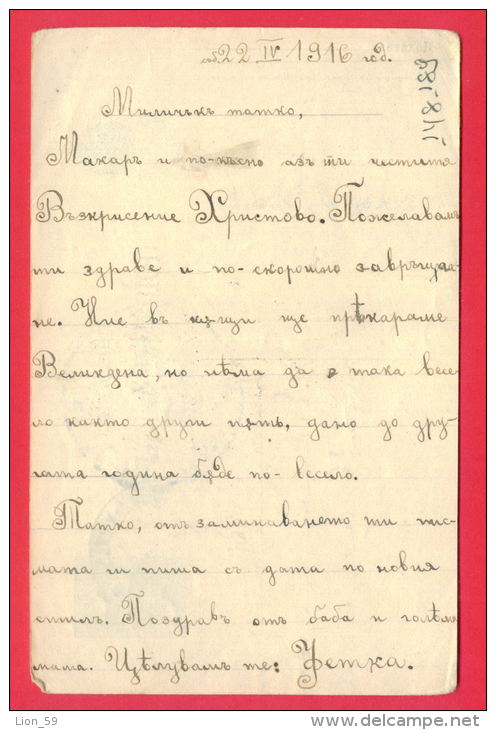 соб. 22 IV 1916 год.
Миличъкъ татко,
Макаръ и по-късно азъ ти честитя
Възкрисение Христово. Пожелавамъ
ти здраве и по-скорошно завръща-
не. Ние въ кѫщи ще прѣкараме
Великдена, но нѣма да е така весе-
ло както други пѫть, дано до дру-
гата година бѫде по-весело.
Татко, отъ заминаването ти пис-
мата ги пиша съ дата по новия
стилъ. Поздравъ отъ баба и голѣма
мама. Цѣлувамъ те: Цетка.
Lion_59